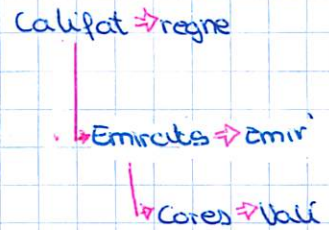 Califat ⇒ regne
Emirats ⇒ Emir
Cores ⇒ Valí